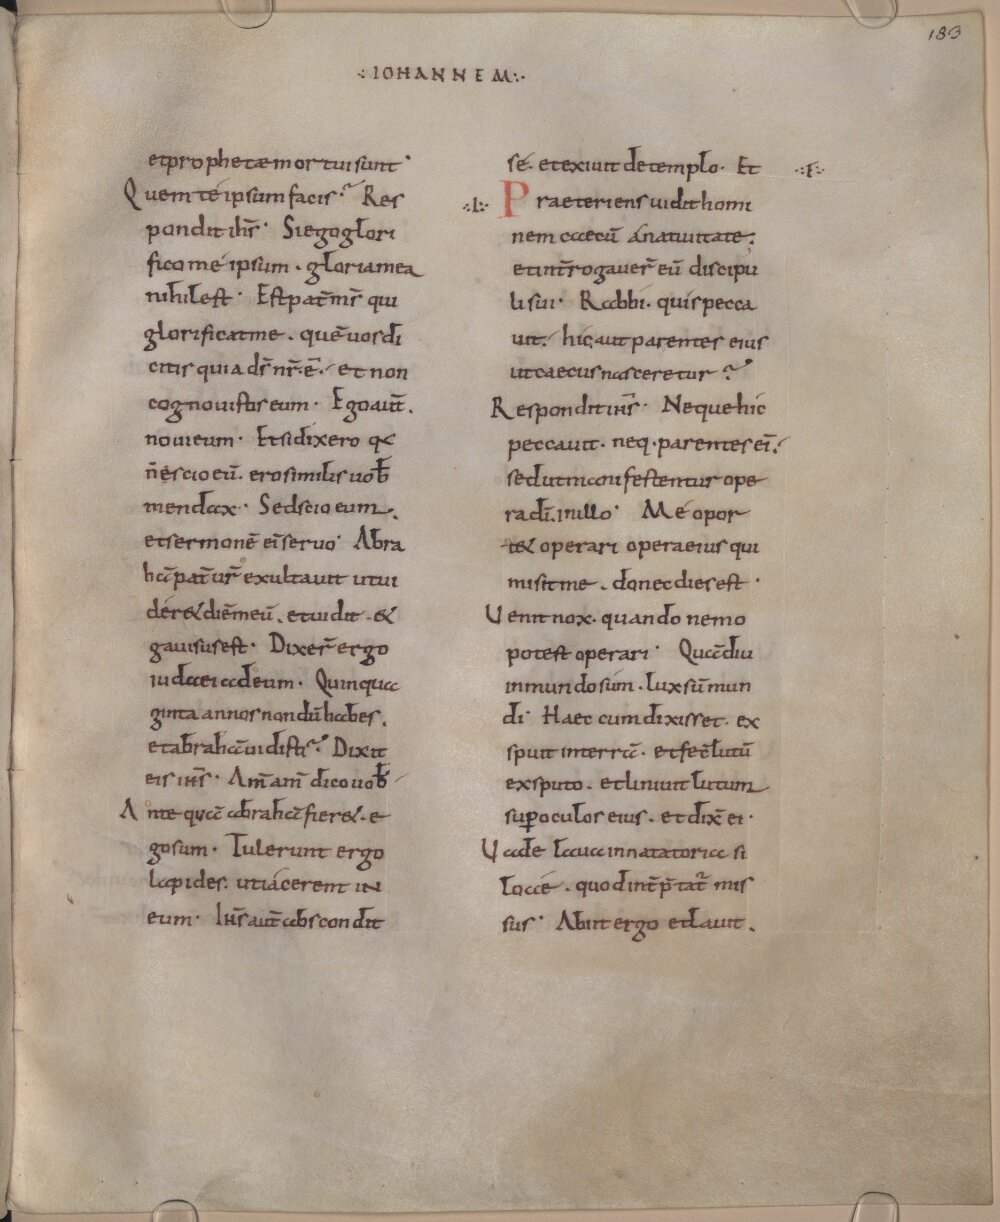 183
·:IOHANNEM:·
et prophetæ mortui sunt·
Quem te ipsum facis? Res
pondit ihs̄· Si ego glori
fico me ipsum. gloria mea
nihil est· Est pat̄ ms̄ qui
glorificat me. quē vos di
citis quia ds̄ nr̄ ē. et non
cognovistis eum· Ego aut̄.
novi eum· Et si dixero qa
n̄escio eū. ero similis vob̄
mendax· Sed scio eum.
et sermonē ei' servo· Abra
hā pat̄ vr̄ exultavit ut vi
der& diē meū. et vidit. &
gavisus est· Dixer̄ ergo
iudaei ad eum. Quinqua
ginta annos nondū habes.
et abrahā vidisti? Dixit
eis ihs̄· Am̄ am̄ dico vob̄
Ante quā abrahā fier&. e
go sum· Tulerunt ergo
lapides. ut iacerent in
eum· Ihs̄ aut̄ abscondit
se. et exivit de templo. Et ·:F:·
·:I:· Praeteriens vidit homi
nem caecū a nativitate.
et int̄rogaver̄ eū discipu
li sui· Rabbi. quis pecca
vit. hic aut parentes eius
ut caecus nasceretur?
Respondit ihs̄· Neque hic
peccavit. neq. parentes ei'.
sed ut manifestentur ope
ra dī. in illo· Me opor
t& operari opera eius qui
misit me. donec dies est·
Venit nox. quando nemo
potest operari· Quādiu
in mundo sum. lux sū mun
di· Haec cum dixisset. ex
spuit in terrā. et fec̄ lutū
ex sputo. et linivit lutum
sup̄ oculos eius. et dix̄ ei·
Vade lava in natatoria si
loae. quod int̄p̄tat̄ mis
sus· Abiit ergo et lavit.